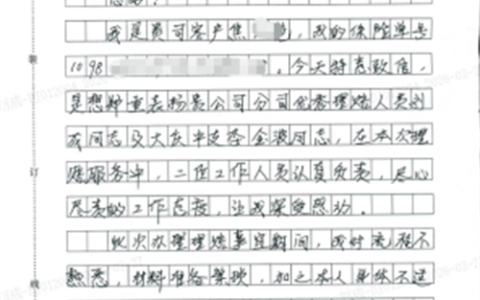 我是贵司客户焦 艳，我的保险单号
1098 。今天特意致信，
是想郑重表扬贵公司分司优秀理赔人员刘
成同志及大庆中支李金波同志，在本次理
赔服务中，二位工作人员认真负责，尽心
尽责的工作态度，让我深受感动。
此次办理理赔事宜期间，我对流程不
熟悉，材料准备繁琐，加之本人身体不适
装
订
线